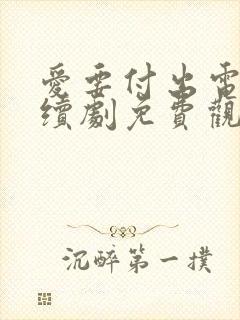 愛要付出電
續劇免費觀
沉醉第一撲